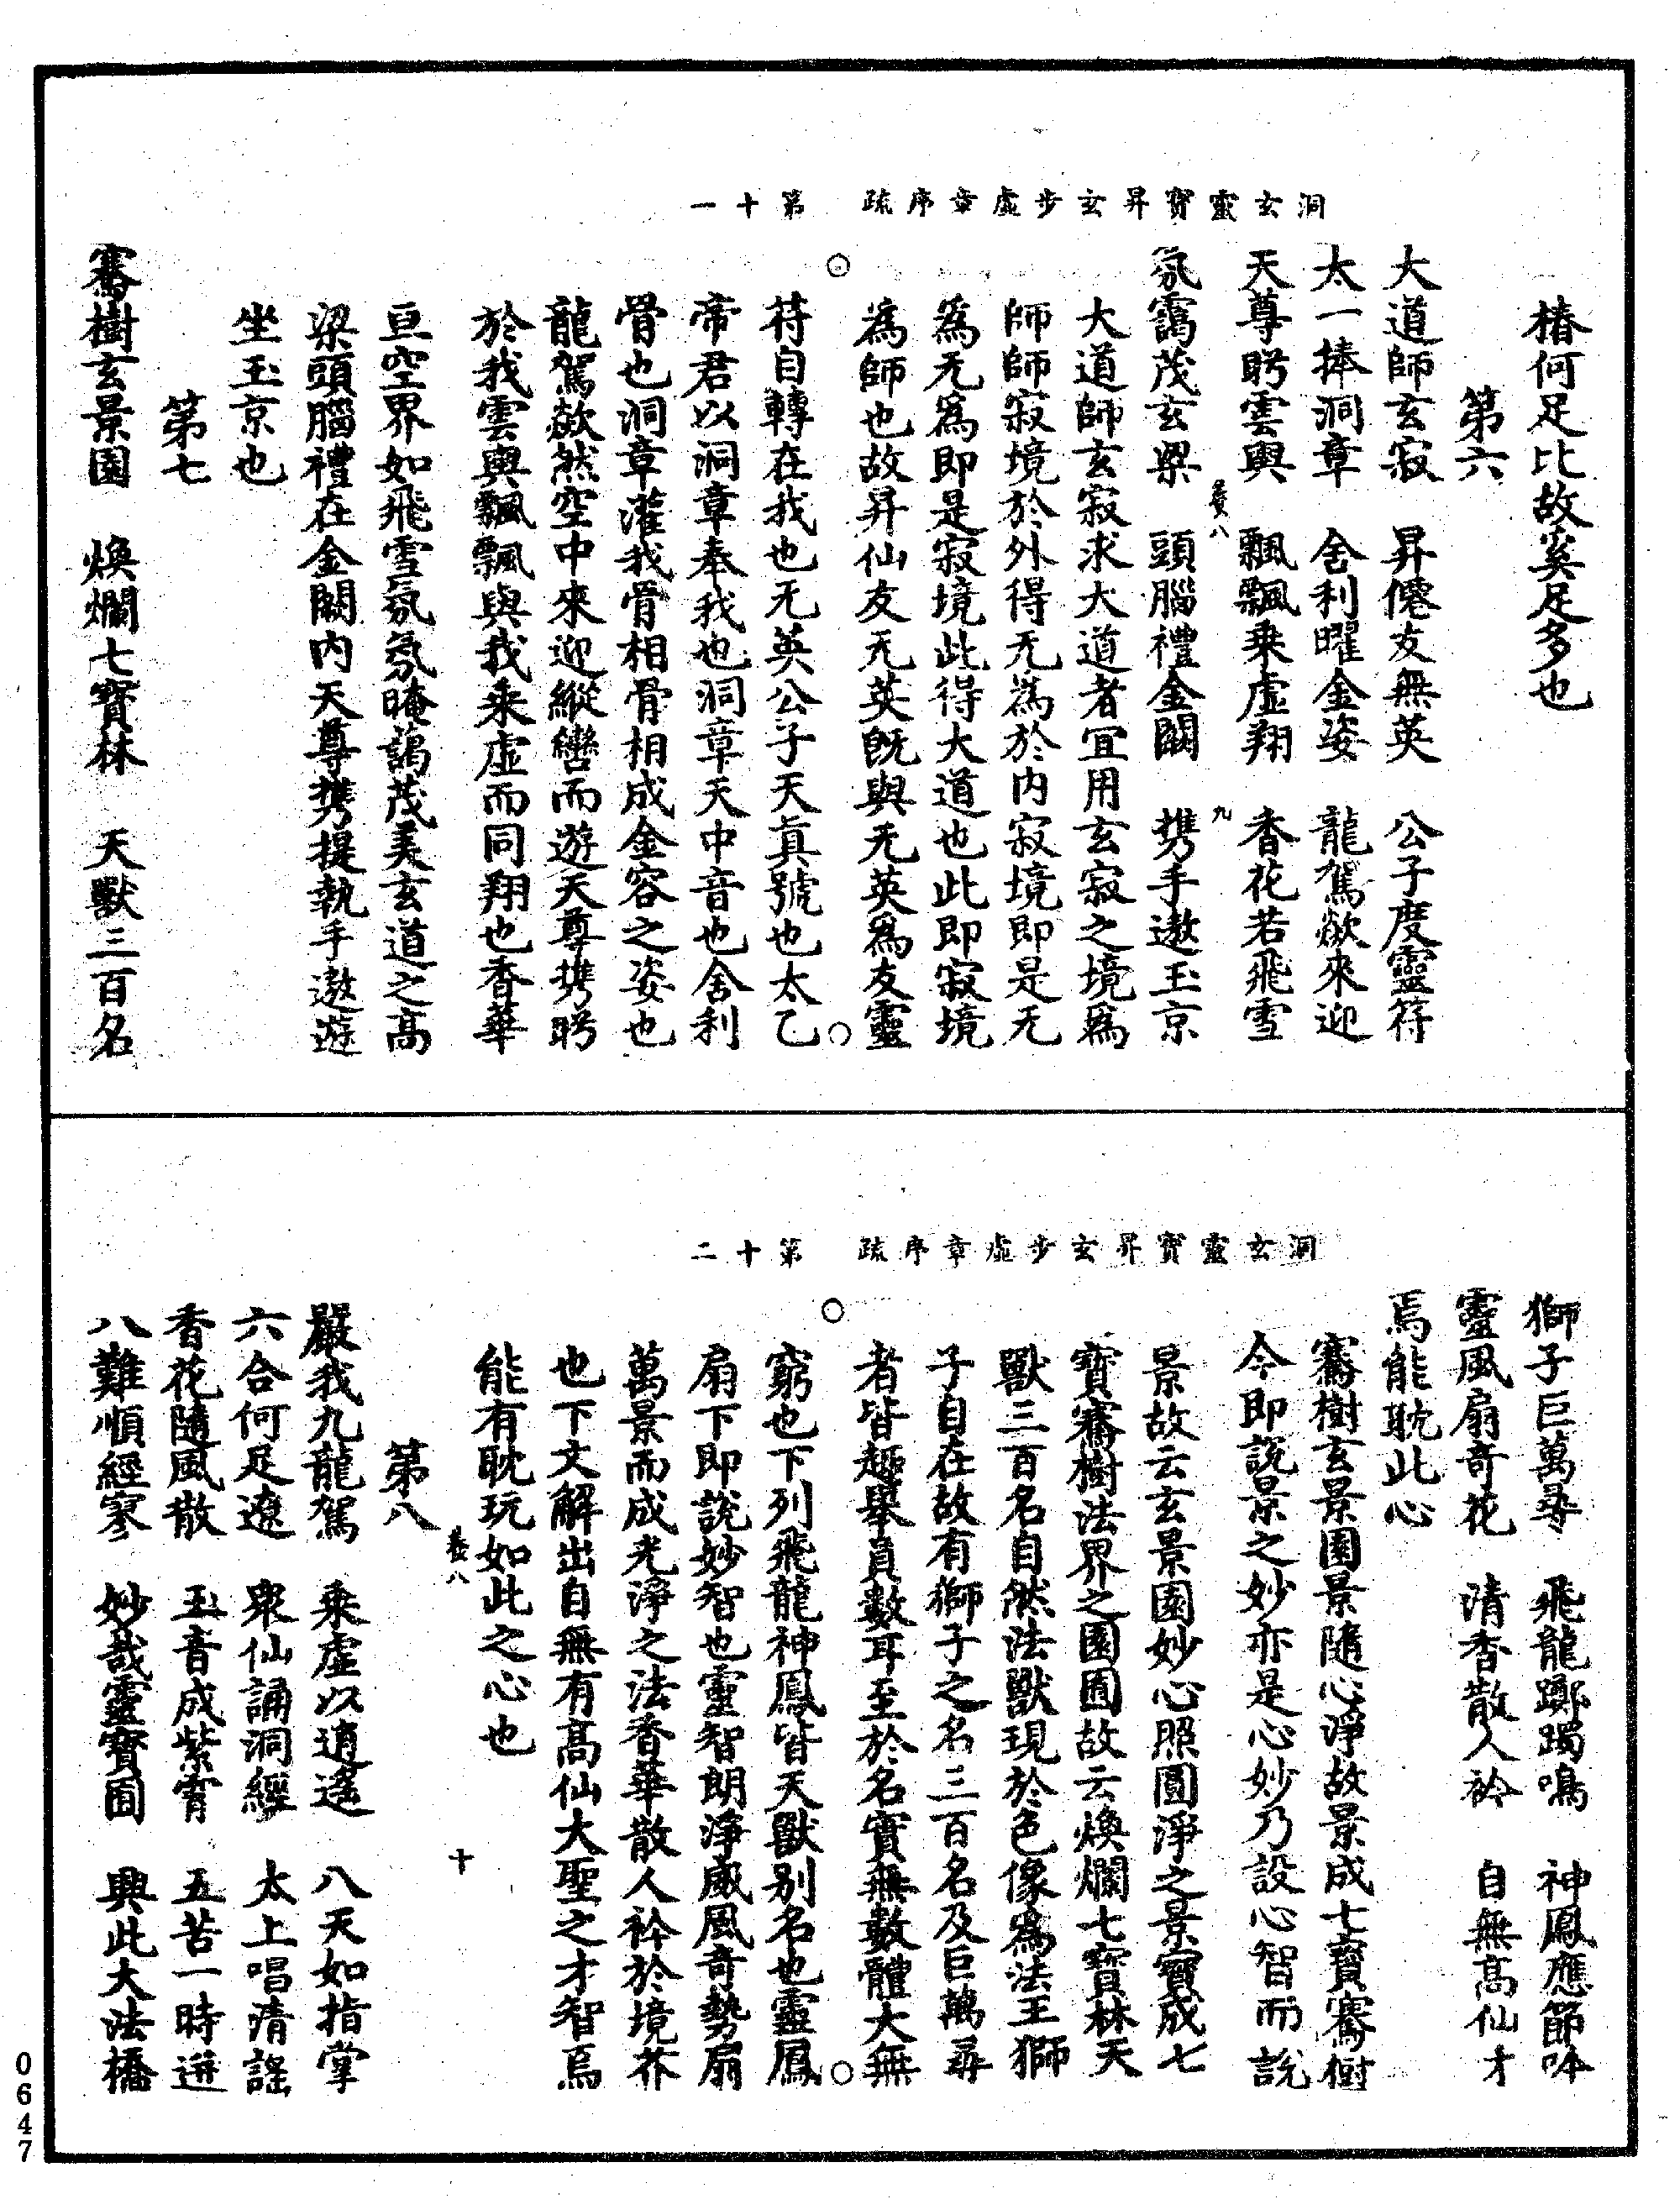 洞玄靈寶昇玄步虛章序疏　第十一
椿何足比故奚足多也
第六
大道師玄寂　昇僊友無英　公子度靈符
太一捧洞章　舍利曜金姿　龍駕欻來迎
天尊眄雲輿　飄飄乘虛翔　香花若飛雪
八　九
氛靄茂玄梁　頭腦禮金闕　攜手遨玉京
大道師玄寂求大道者冝用玄寂之境爲
師師寂境於外得无爲於内寂境即是无
爲无爲即是寂境此得大道也此即寂境
爲師也故昇仙友无英既與无英爲友靈
符自轉在我也无英公子天真號也太乙
帝君以洞章奉我也洞章天中音也舍利
骨也洞章灌我骨相骨相成金容之姿也
龍駕欻然空中來迎縱轡而遊天尊携眄
於我雲輿飄飄與我乘虛而同翔也香華
亘空界如飛雪氛氛晻藹茂美玄道之高
梁頭腦禮在金闕内天尊携提執手遨遊
坐玉京也
第七
騫樹玄景園　煥爛七寶林　天獸三百名
洞玄靈寶昇玄步虛章序疏　第十二
獅子巨萬尋　飛龍躑躅鳴　神鳳應節吟
靈風扇奇花　清香散人衿　自無高仙才
焉能耽此心
騫樹玄景園景隨心淨故景成七寶騫樹
今即説景之妙亦是心妙乃設心智而説
景故云玄景園妙心照圓淨之景寶成七
寶騫樹法界之園囿故云煥爛七寶林天
獸三百名自然法獸現於色像爲法王獅
子自在故有獅子之名三百名及巨萬尋
者皆趣舉眞數耳至於名實無數體大無
窮也下列飛龍神鳳皆天獸别名也靈風
扇下即説妙智也靈智朗淨威風奇勢扇
萬景而成光淨之法香華散人衿於境芥
也下文解出自無有高仙大聖之才智焉
能有耽玩如此之心也
八　十
第八
嚴我九龍駕　乘虛以逍遙　八天如指掌
六合何足遼　衆仙誦洞經　太上唱清謠
香花隨風散　玉音成紫霄　五苦一時迸
八難順經寥　妙哉靈寶囿　興此大法橋
0647